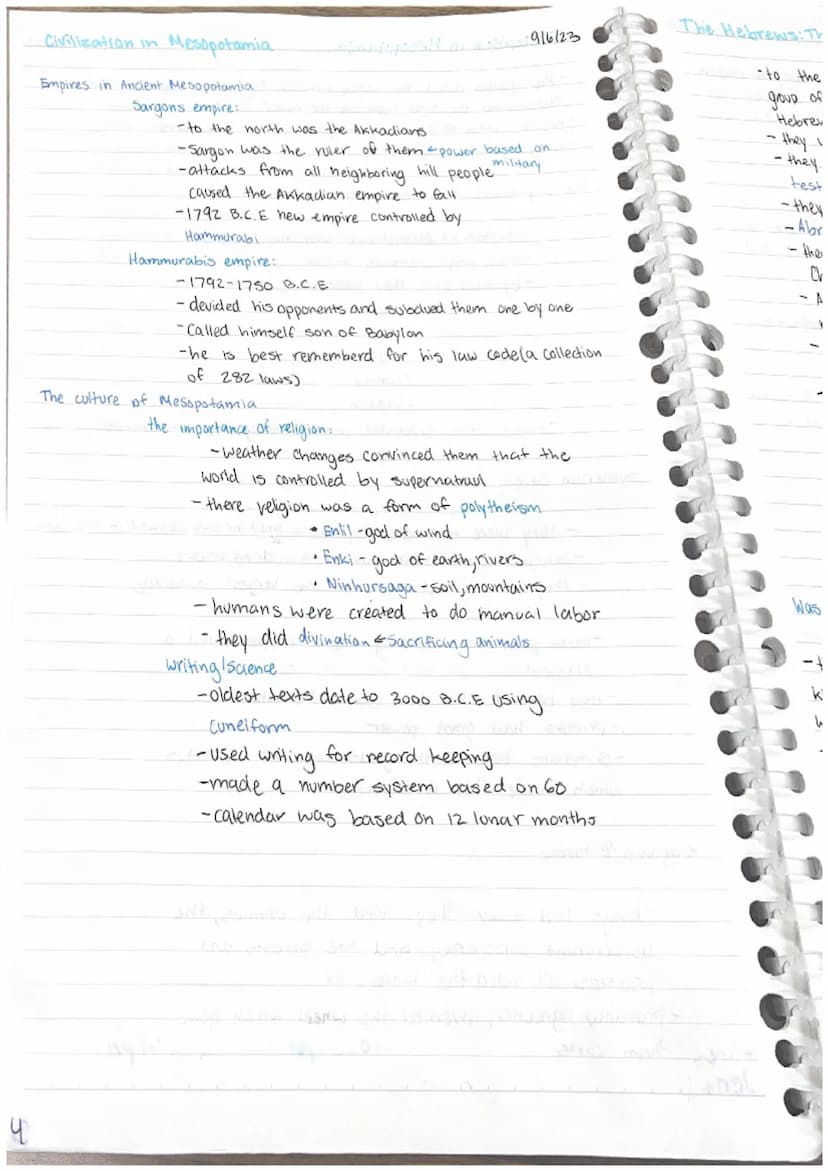 Civilization in Mesopotamia 9/6/23
Empires in Ancient Mesopotamia
Sargons empire:
-to the north was the Akkadians
-Sargon was the ruler of them ←power based on military
-attacks from all neighboring hill people
caused the Akkadian empire to fall
-1792 B.C.E new empire controlled by
Hammurabi
Hammurabis empire:
-1792-1750 B.C.E
-devided his opponents and subdued them one by one
-Called himself son of Babylon
-he is best rememberd for his law code(a collection
of 282 laws)
The culture of Mesopotamia
the importance of religion:
-weather changes convinced them that the
world is controlled by supernatraul
-there religion was a form of polytheism
• Enlil -god of wind
• Enki - god of earth, rivers
• Ninhursaga -soil, mountains
- humans were created to do manual labor
- they did divination ←sacrificing animals
writing/science
-oldest texts date to 3000 B.C.E using
Cuneiform
-used writing for record keeping
-made a number system based on 60
-calendar was based on 12 lunar months
4
The Hebrews:
-to the
group of
- they
- they
-they
Was